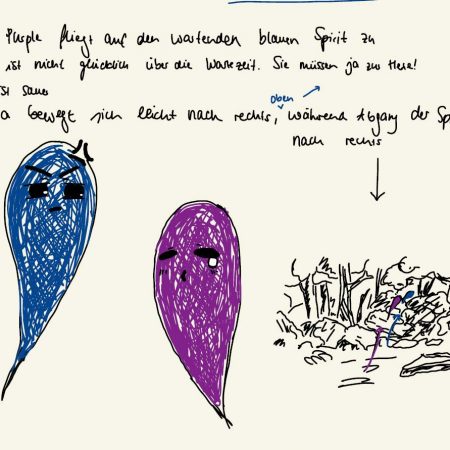 Purple fliegt auf den wartenden blauen Spirit zu
ist nicht glücklich über die Wartezeit. Sie müssen ja zur Hexe!
ist sauer
oben
a bewegt sich leicht nach rechts, während Abgang der Sp
nach rechts